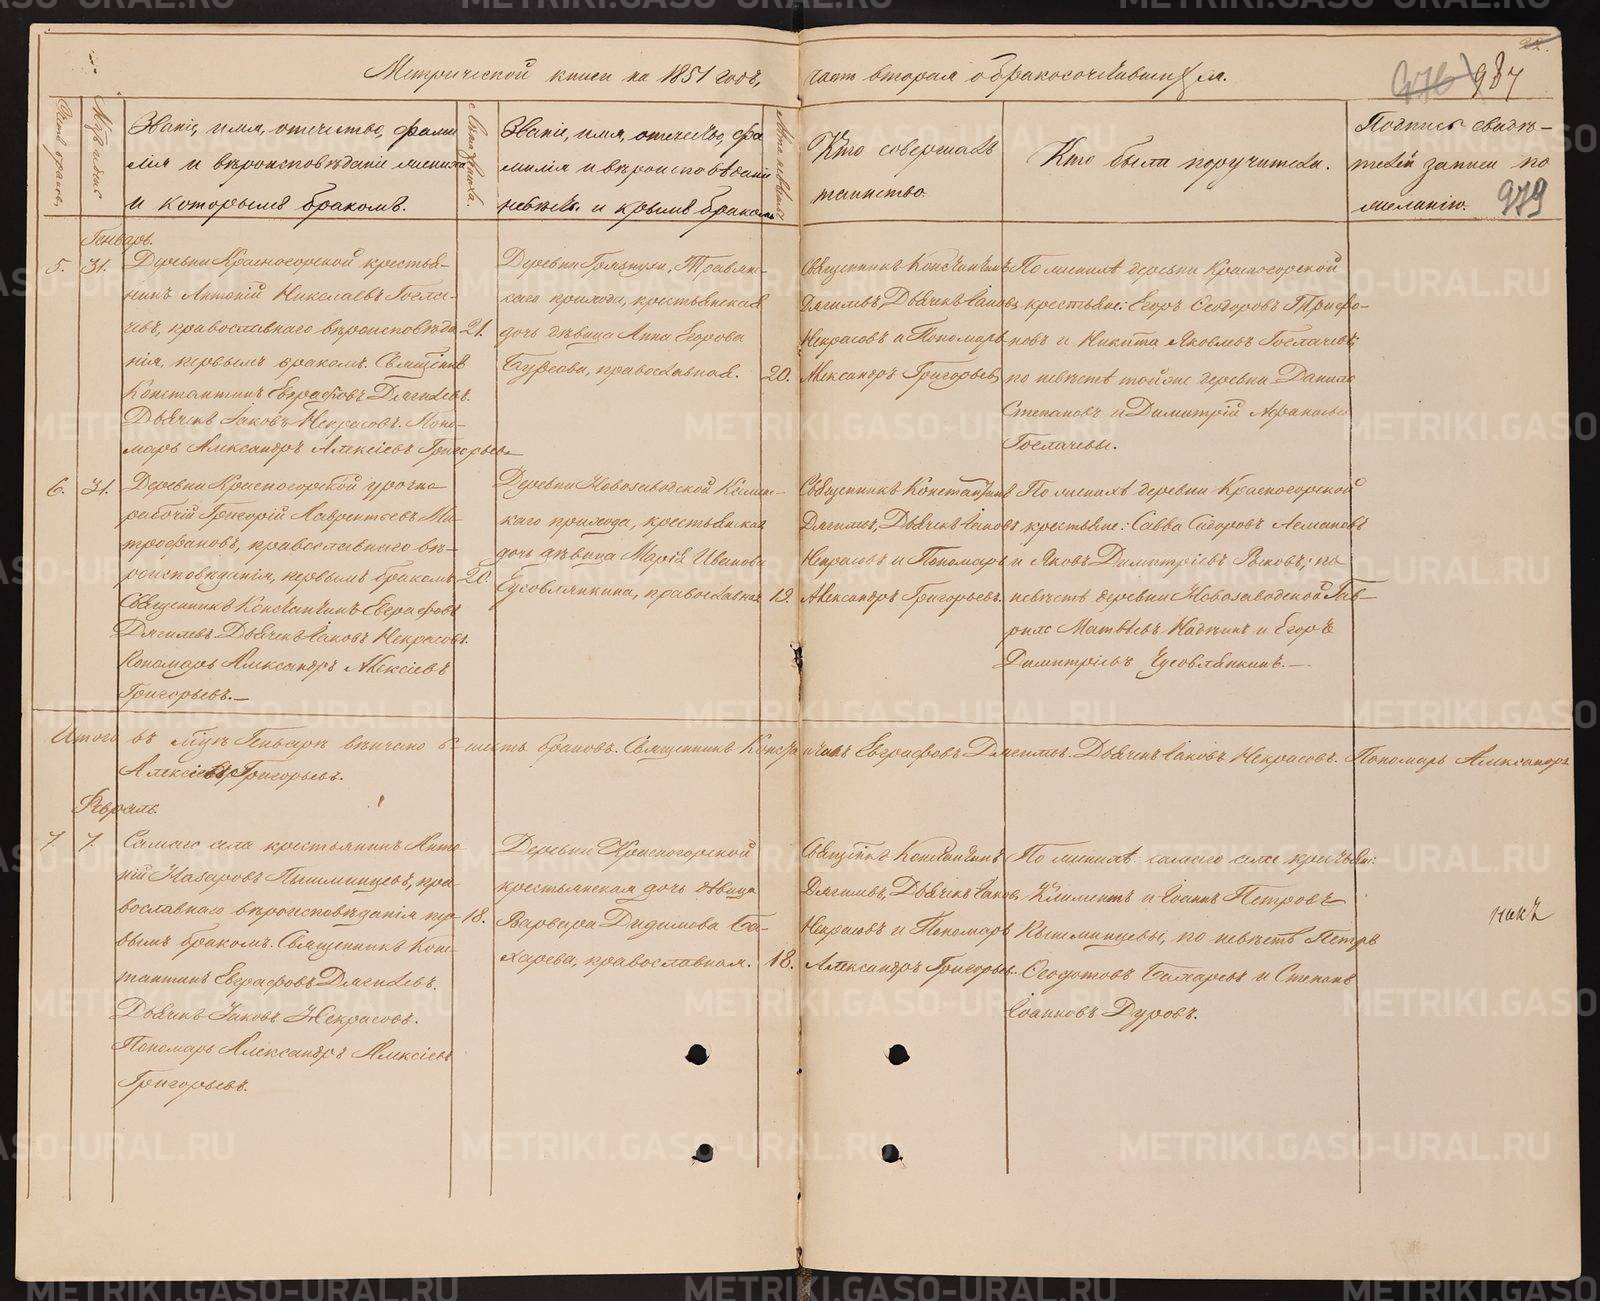 Метрической книги на 1851 годъ, часть вторая о бракосочетавшихся.
984
979
Счетъ браковъ.
Мѣсяцъ и день
Званіе, имя, отечество, фами
лія и вѣроисповѣданіе жениха
и которымъ бракомъ.
Лѣта жениха.
Званіе, имя, отечество, фа
милія и вѣроисповѣданіе
невѣсты и крымъ бракомъ
Лѣта невѣсты
Кто совершалъ
таинство.
Кто были поручители.
Подпись свидѣ-
телей записи по
желанію.
Генварь.
5.
31.
Деревни Красногорской крестья-
нинъ Антоній Николаевъ Госла-
чевъ, православнаго вѣроисповѣда
нія, первымъ бракомъ. Священникъ
Константинъ Евграфовъ Дягилевъ.
Дьячекъ Іаковъ Некрасовъ. Поно-
марь Александръ Алексіевъ Григорьевъ
21.
прихода, крестьянская
дочь дѣвица Анна Егорова
православная.
20.
Священникъ Константинъ
Дягилевъ, Дьячекъ Іаковъ
Некрасовъ и Пономарь
Александръ Григорьевъ
По женихѣ деревни Красногорской
крестьяне: Егоръ Ѳеодоровъ Трифо-
новъ и Никита Яковлевъ Гослачевъ;
по невѣстѣ тойже деревни Данило
Степановъ и Димитрій
Гослачевы.
6.
31.
Деревни Красногорской урочно
рабочій Григорій Лаврентьевъ Ми-
трофановъ, православнаго вѣ-
роисповѣданія, первымъ бракомъ
Священникъ Константинъ Евграфовъ
Дягилевъ. Дьячекъ Іаковъ Некрасовъ.
Пономарь Александръ Алексіевъ
Григорьевъ.
20.
Деревни Новозаводской
прихода, крестьянская
дочь дѣвица Марія Иванова
православная
19.
Священникъ Константинъ
Дягилевъ, Дьячекъ Іаковъ
Некрасовъ и Пономарь
Александръ Григорьевъ.
По женихѣ деревни Красногорской
крестьяне: Савва Сидоровъ
и Яковъ Димитріевъ по
невѣстѣ деревни Новозаводской Гав-
рило Матвѣевъ и Егоръ
Димитріевъ Чусовлянкинъ.
Итого въ Генварѣ вѣнчано 6 шесть браковъ. Священникъ Константинъ Евграфовъ Дягилевъ. Дьячекъ Іаковъ Некрасовъ. Пономарь Александръ
Алексіевъ Григорьевъ.
Февраль.
7.
7.
Самаго села крестьянинъ Анто
ній Назаровъ Пышминцевъ, пра-
вославнаго вѣроисповѣданія пер-
вымъ бракомъ. Священникъ Конс-
тантинъ Евграфовъ Дягилевъ.
Дьячекъ Іаковъ Некрасовъ.
Пономарь Александръ Алексіевъ
Григорьевъ.
18.
Деревни Красногорской
крестьянская дочь дѣвица
Варвара Дидимова Ба-
харева, православная.
18.
Священникъ Константинъ
Дягилевъ, Дьячекъ Іаковъ
Некрасовъ и Пономарь
Александръ Григорьевъ.
По женихѣ самаго села крестьяне:
Климентъ и Іоаннъ Петровы
Пышминцевы, по невѣстѣ Петръ
Ѳедотовъ Бахаревъ и Степанъ
Іоанновъ Дуровъ.
METRIKI.GASO-URAL.RU